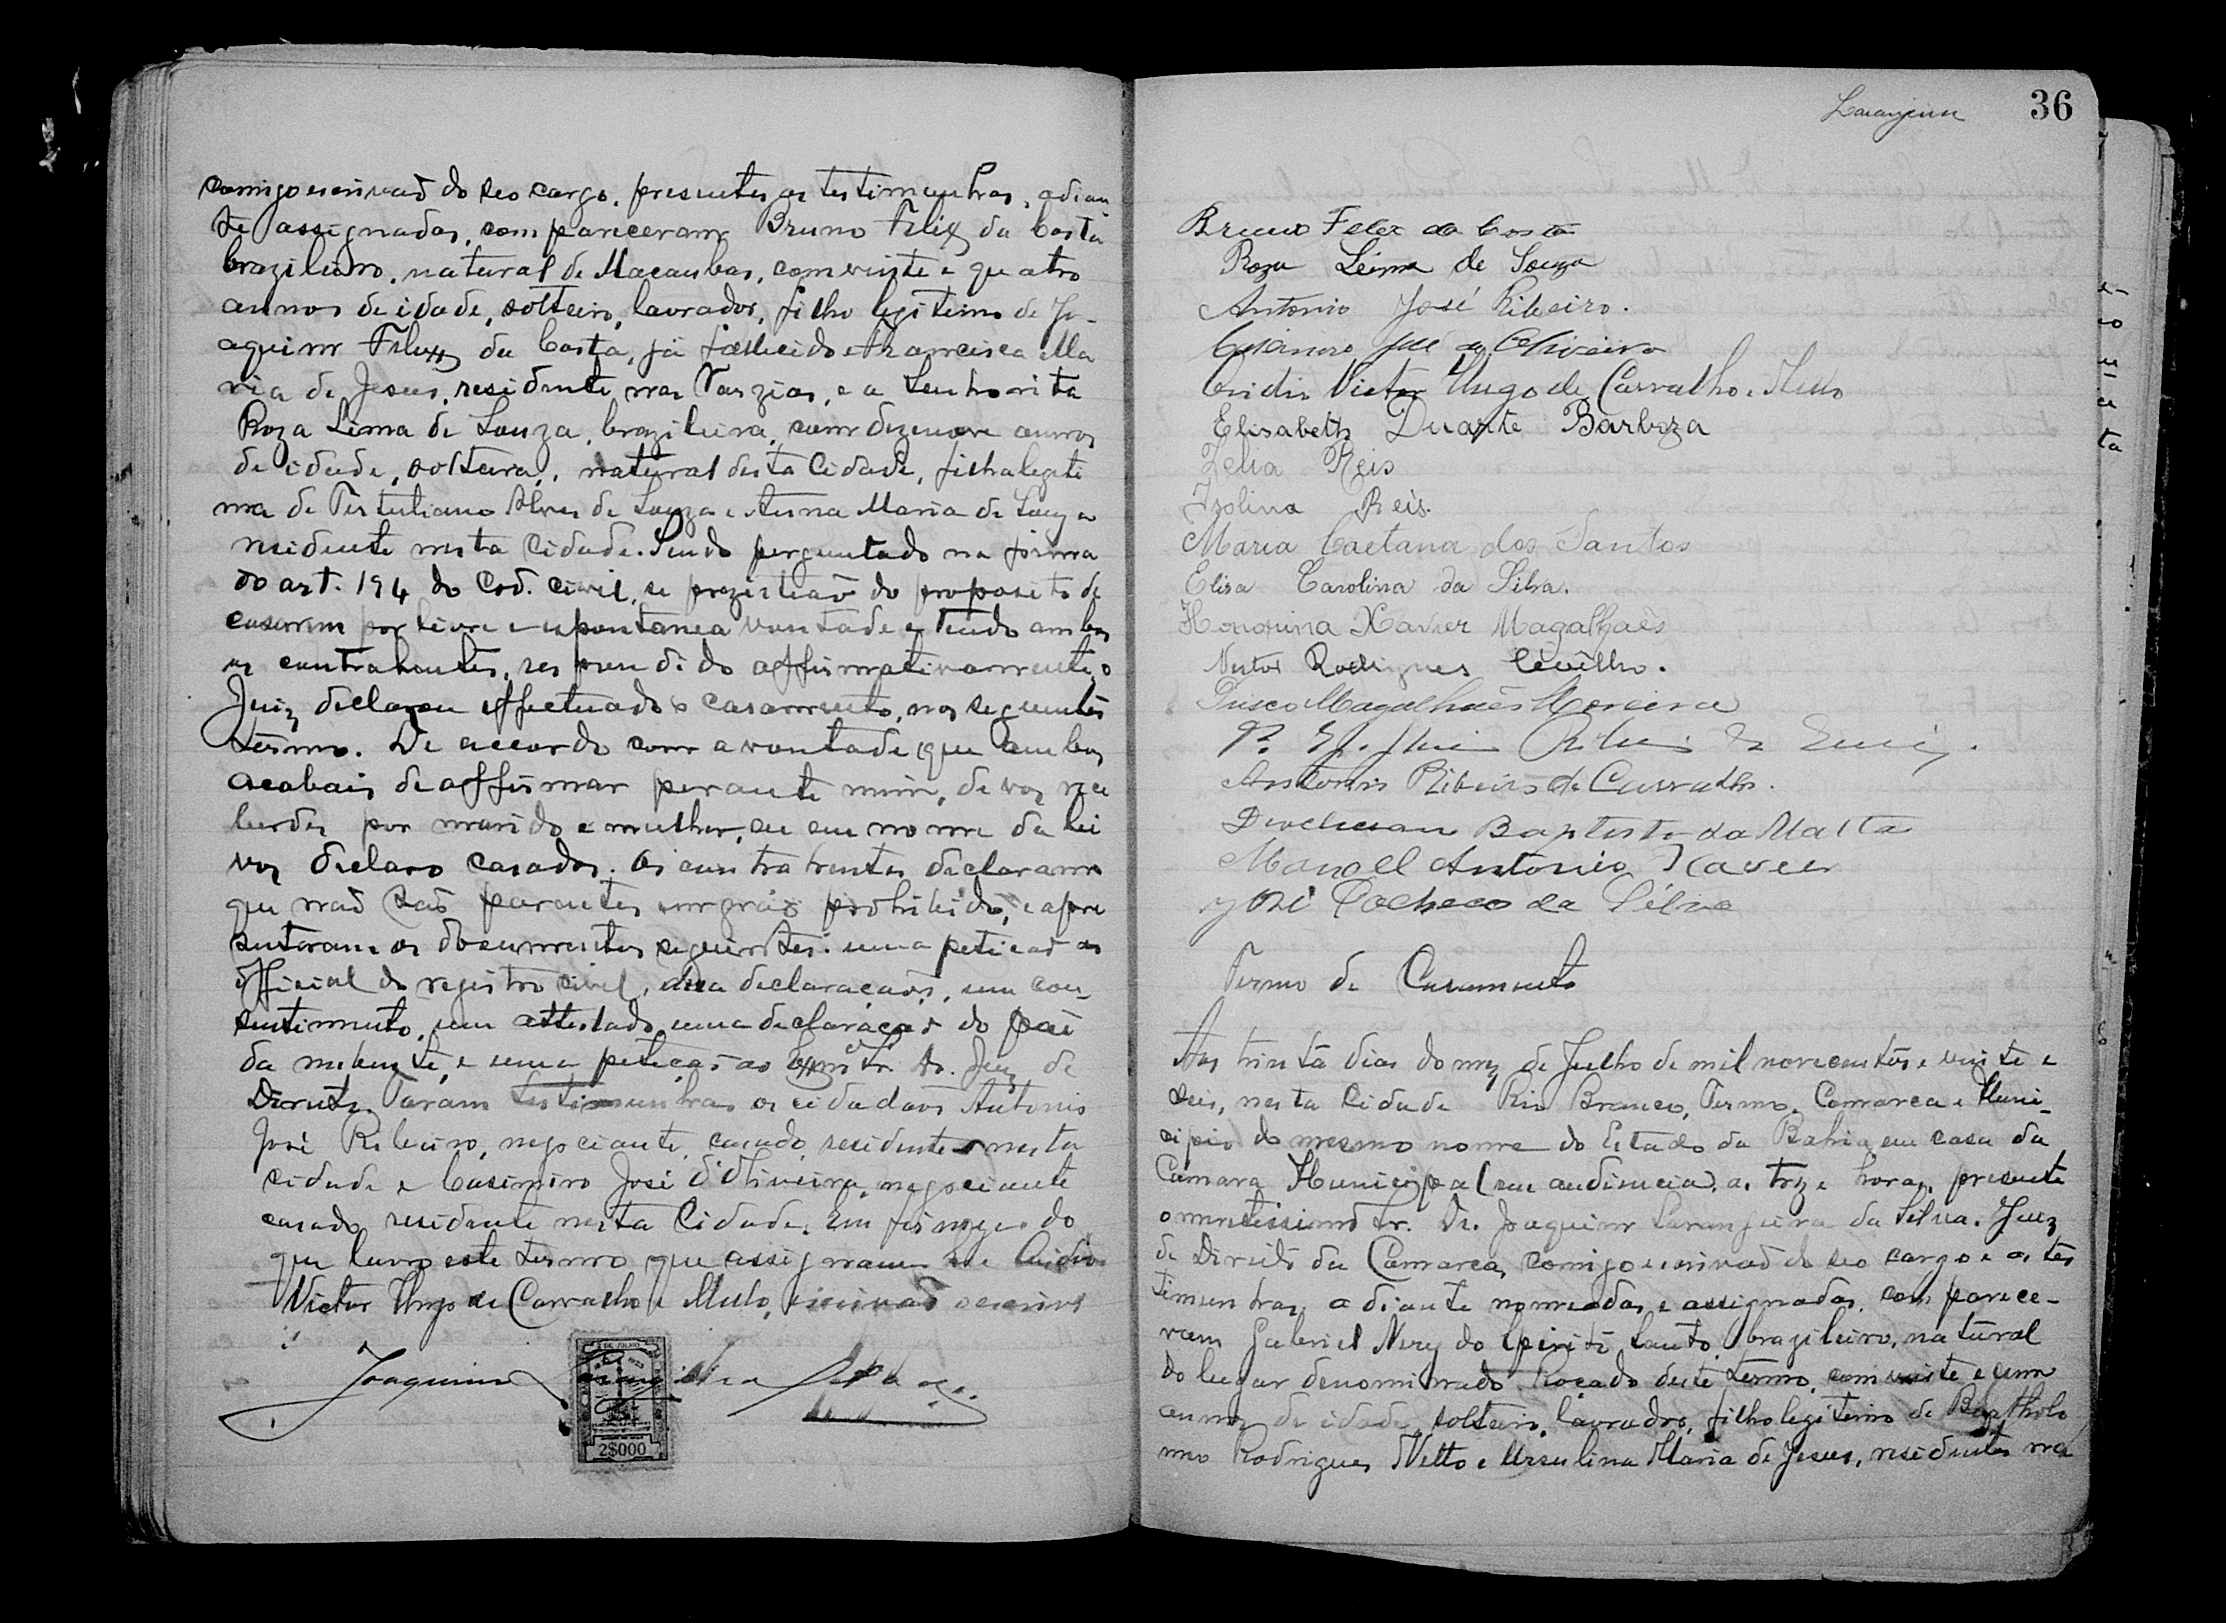 comigo escrivaõ do seo cargo, presentes as testimunhas, adian
te assignadas, compareceram Bruno Felix da Costa
brazileiro, natural de Macaubas, com vinte e quatro
annos de idade, solteiro, lavrador, filho legitimo de Jo-
aquim Felix da Costa, já fallecido e Francisca Ma
ria de Jesus, residente nas Varzias, e a Senhorita
Roza Lima de Souza, brazileira, com dezenove annos
de idade, solteira, natural desta Cidade, filha legiti
ma de Tertuliano Alves de Souza e Anna Maria de Souza
residente nesta Cidade. Sendo perguntado na forma
do art. 194 do Cod. Civil, se prezisteaõ do proposito de
casarem por livre e espontanea vontade e tendo ambos
os contrahentes, respondido affirmativamente, o
Juiz declarou effectuado o casamento, nos seguintes
termo. De accordo com a vontade que ambos
acabais de affirmar perante mim, de vos rece
berdes por marido e mulher, eu em nome da lei
vos declaro casados. Os contrahentes declararam
que naõ saõ parentes em gráo prohibido, e apre
sentaram os documentos seguintes: uma peticaõ ao
official do registro civil, declaracaõs, um con-
sentimento, um attestado, uma declaraçaõ do pai
da nubente, e uma petiçaõ ao Exmº Sr. Dr. Juiz de
Direito, Foram testimunhas os cidadaõs Antonio
José Ribeiro, negociante, casado, residente nesta
cidade e Casimiro José d'Oliveira, negociante
casado, residente nesta Cidade. Em firmeza do
que lavro este termo que assignam. Eu
Victor Hugo de Carvalho e Mello, escrivaõ o escrevi
Joaquim Laranjeira da Silva
2$000
Laranjeira
36
Bruno Felex da Costa
Roza Leima de Souza
Antonio José Ribeiro.
Casimiro José de Oliveira
Victor Hugo de Carvalho e Mello
Elisabeth Duarte Barboza
Zelia Reis
Izolina Reis.
Maria Caetana dos Santos
Elisa Carolina da Silva.
Honorina Xavier Magalhaẽs
Nestor Rodrigues
Prisco Magalhaẽs Moreira
Antonio Ribeiro de Carvalho.
Baptista da Matta
Manoell Antonio Xavier
José Pacheco da Silva
Termo de Casamento
Aos trinta dias do mez de Julho de mil novecentos e vinte e
seis, nesta Cidade Rio Branco, Termo, Comarca e Muni-
cipio do mesmo nome do Estado da Bahia em casa da
Camara Municipal (em audiencia), as treze horas, presente
o meritissimo Sr. Dr. Joaquim Laranjeira da Silva. Juiz
de Direito da Comarca, comigo escrivaõ do seo cargo e as tes
timunhas adiante nomeadas e assignadas, comparece-
ram Gabriel Nery do Espirito Santo, brazileiro, natural
do lugar denominado Roçado deste termo, com vinte e um
annos de idade, solteiro, lavrador, filho legitimo de Bartholo
meo Rodrigues Netto e Ursulina Maria de Jesus, residentes na